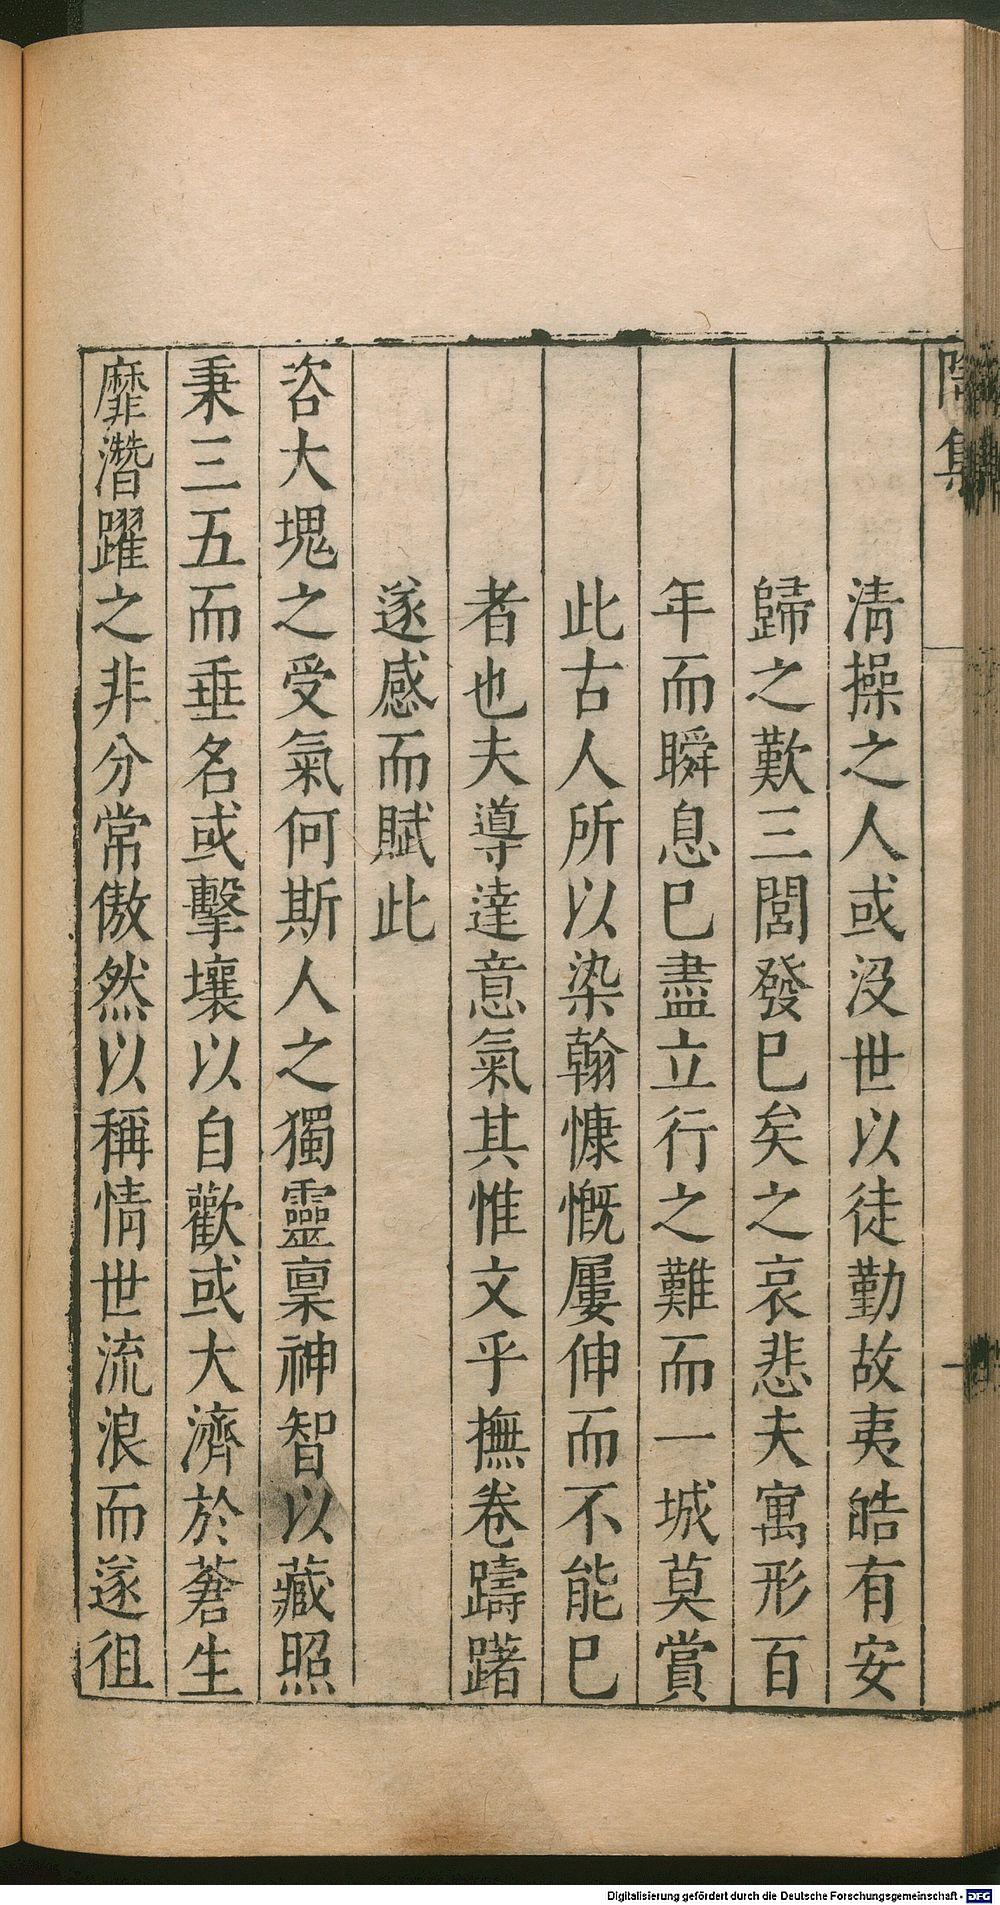 陶集
清操之人或没世以徒勤故夷皓有安
歸之歎三閭發巳矣之哀悲夫寓形百
年而瞬息巳盡立行之難而一城莫賞
此古人所以染翰慷慨屢伸而不能巳
者也夫導達意氣其惟文乎撫卷躊躇
遂感而賦此
咨大塊之受氣何斯人之獨靈稟神智以藏照
秉三五而垂名或擊壤以自歡或大濟於蒼生
靡潛躍之非分常傲然以稱情世流浪而遂徂
Digitalisierung gefördert durch die Deutsche Forschungsgemeinschaft - DFG